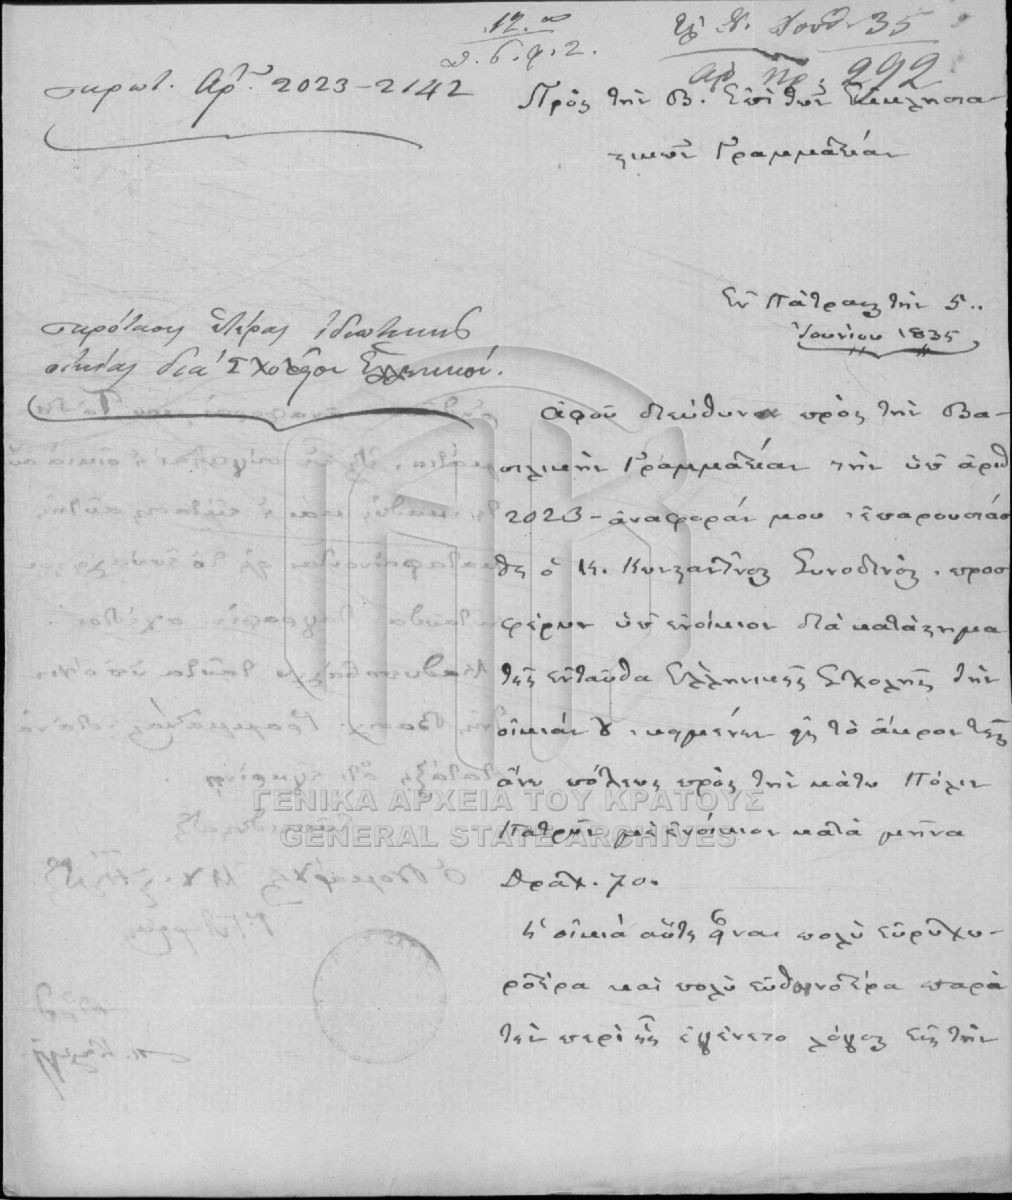 12.
πρωτ. Αρ. 2023-2142
35
αρ. πρ. 292
Πρὸς τὴν Β. Ἐπὶ τῶν Ἐκκλησια-
στικῶν Γραμματείαν
Ἐν Πάτραις τὴν 5..
Ἰουνίου 1835
πρότασις ἑτέρας ἰδιωτικῆς
οἰκίας διὰ Σχολεῖον Ἑλληνικόν.
Ἀφοῦ διεύθυνα πρὸς τὴν Βα-
σιλικὴν Γραμματείαν τὴν ὑπ' ἀριθ
2023 - ἀναφοράν μου, ἐπαρουσιάσ
θη ὁ Κ. Κωνσταντῖνος Συνοδινός, προσ
φέρων ὑπ' ἐνοίκιον διὰ κατάστημα
τῆς ἐνταῦθα Ἑλληνικῆς Σχολῆς τὴν
οἰκίαν του, κειμένην εἰς τὸ ἄκρον τῆς
ἄνω πόλεως πρὸς τὴν κάτω Πόλιν
Πατρῶν μὲ ἐνοίκιον κατὰ μῆνα
δραχ. 70.
Ἡ οἰκία αὕτη εἶναι πολὺ εὐρυχω-
ροτέρα καὶ πολὺ εὐθηνοτέρα παρὰ
τὴν περὶ ἧς ἐγένετο λόγος εἰς τὴν
ΓΕΝΙΚΑ ΑΡΧΕΙΑ ΤΟΥ ΚΡΑΤΟΥΣ
GENERAL STATE ARCHIVES